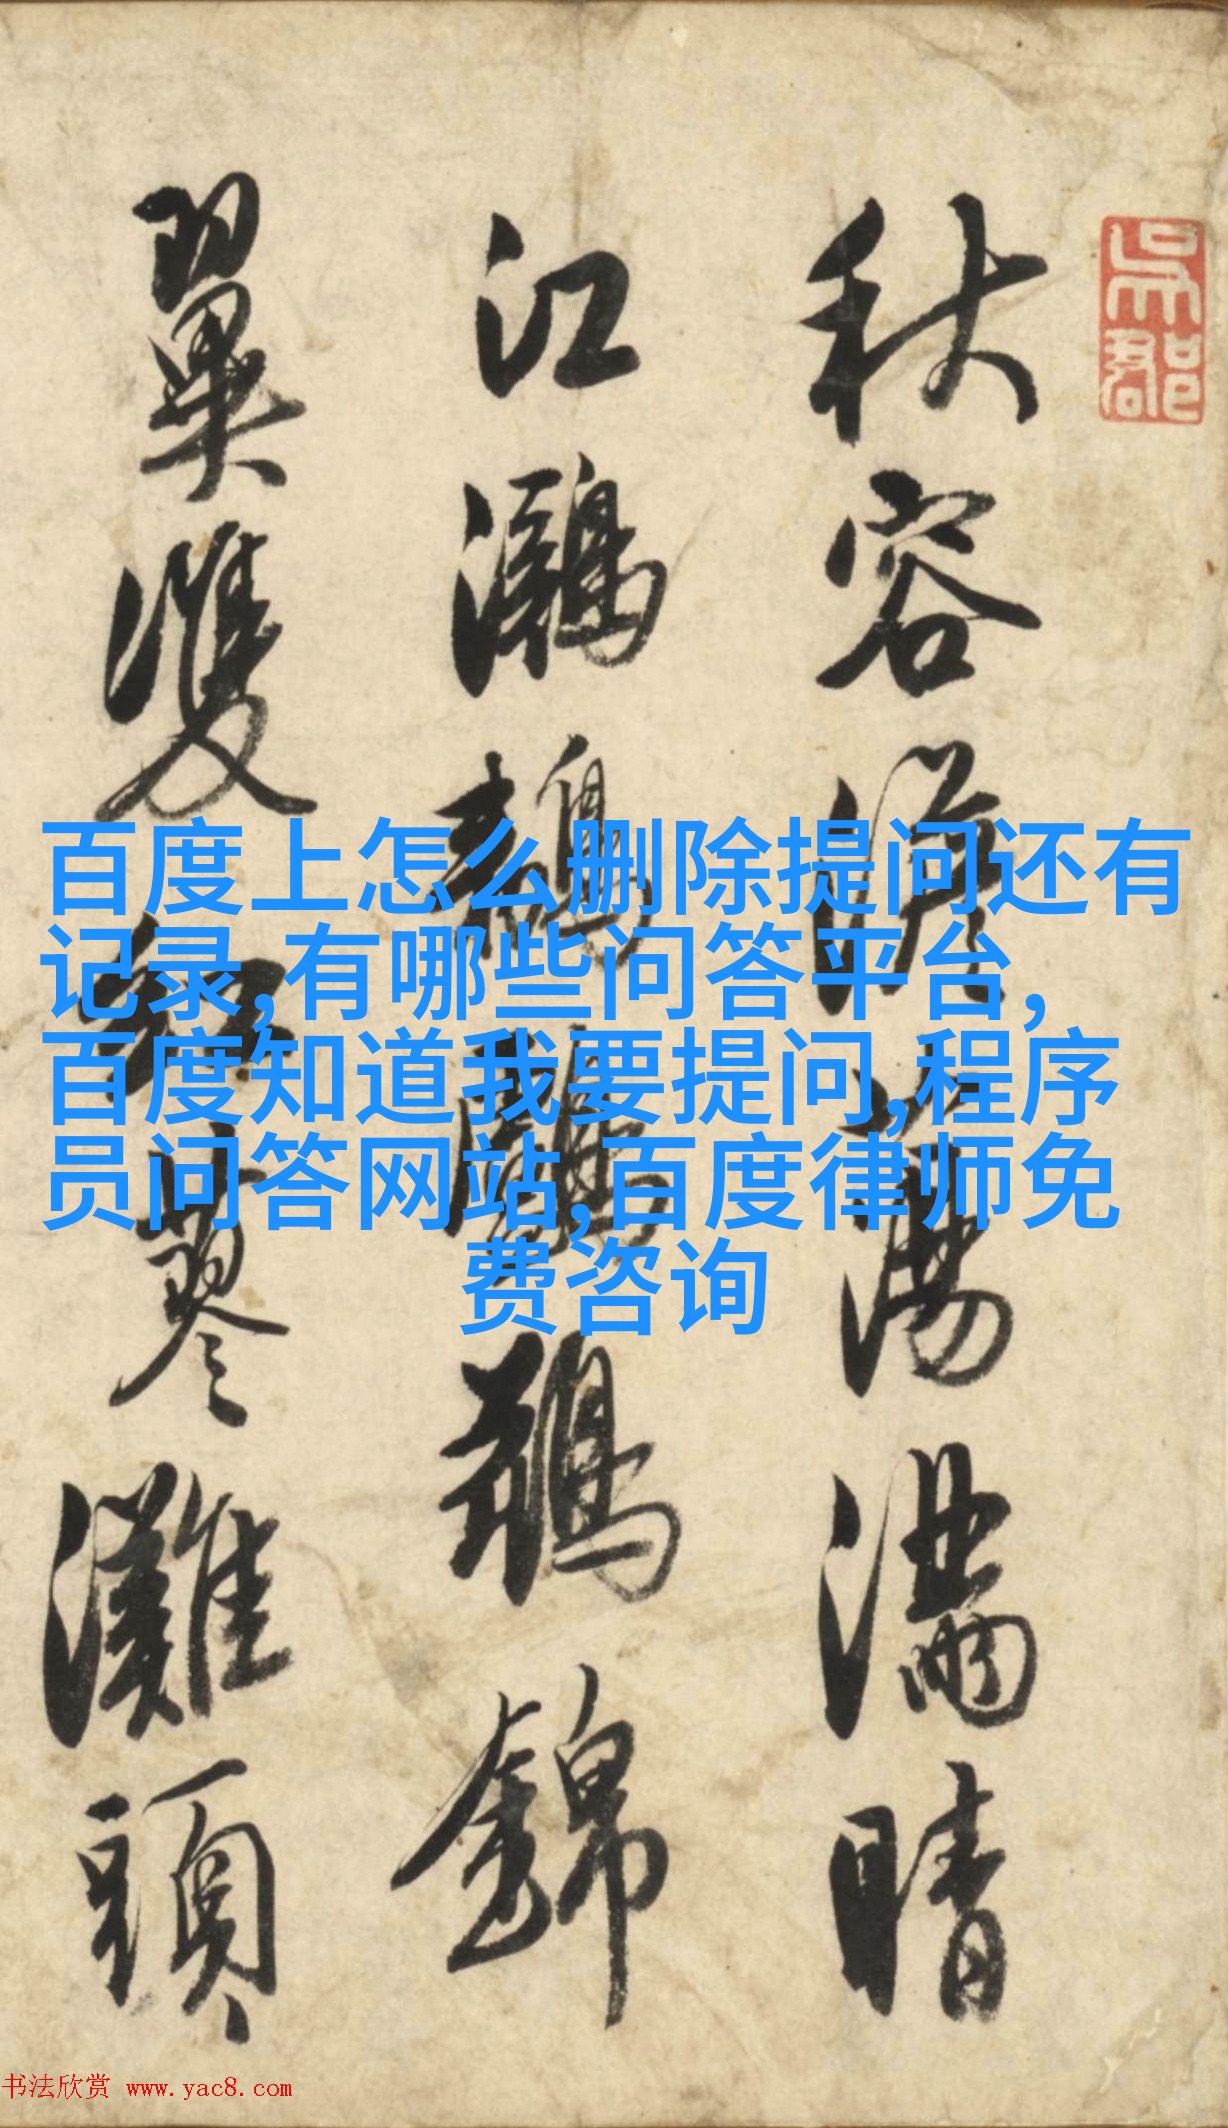 吳郡
秋容蕩滿晴
江鸂鶒鸕鶿錦
翼雙紅蓼灘頭
百度上怎么删除提问还有
记录,有哪些问答平台,
百度知道我要提问,程序
员问答网站,百度律师免
费咨询
书法欣赏 www.yac8.com